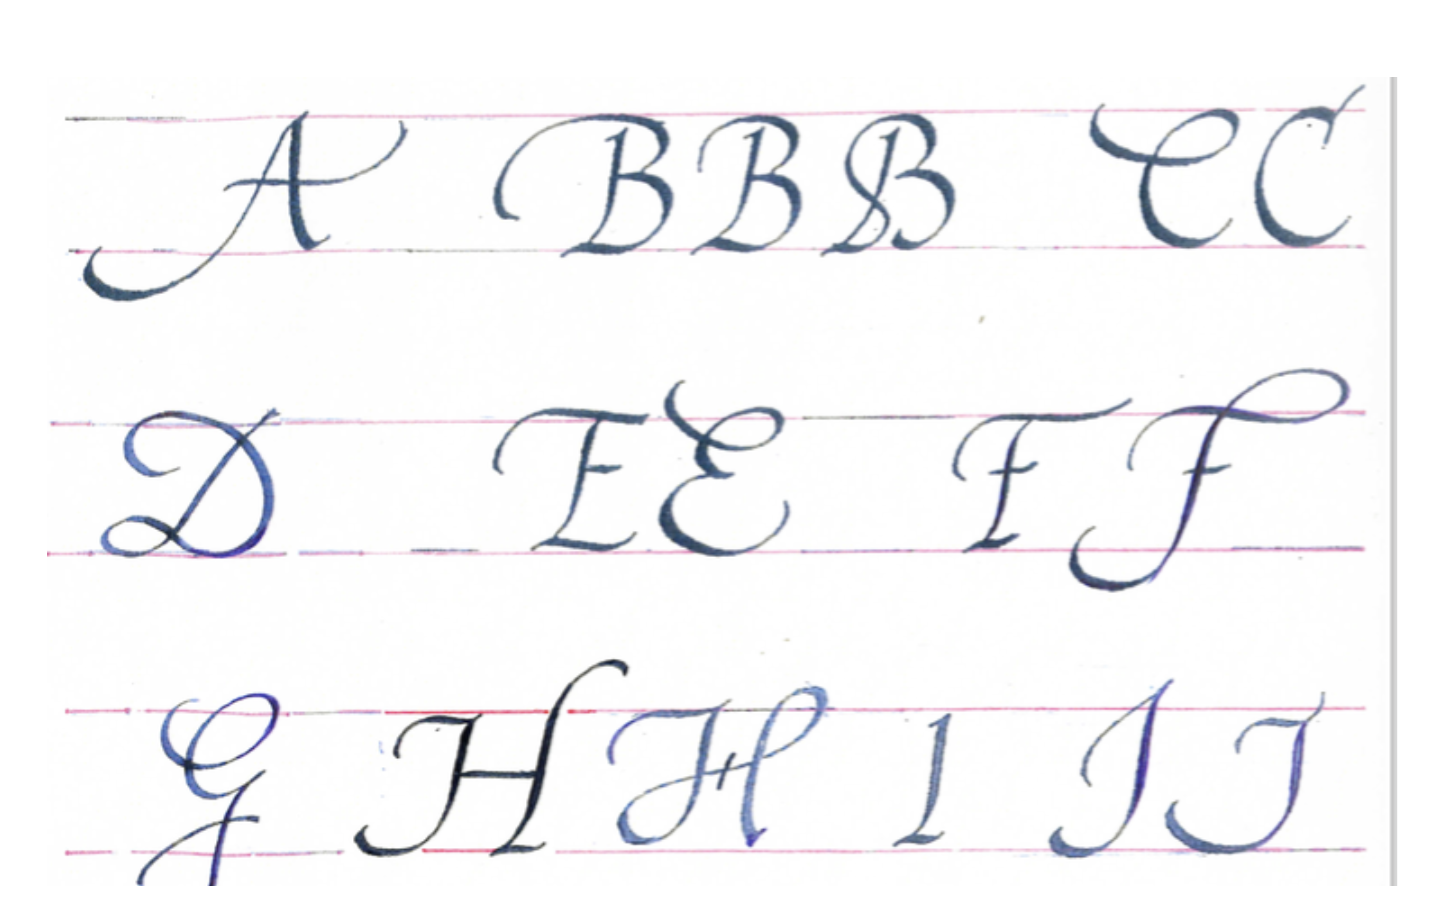 A B B B C C
D E E F F
G H H I J J